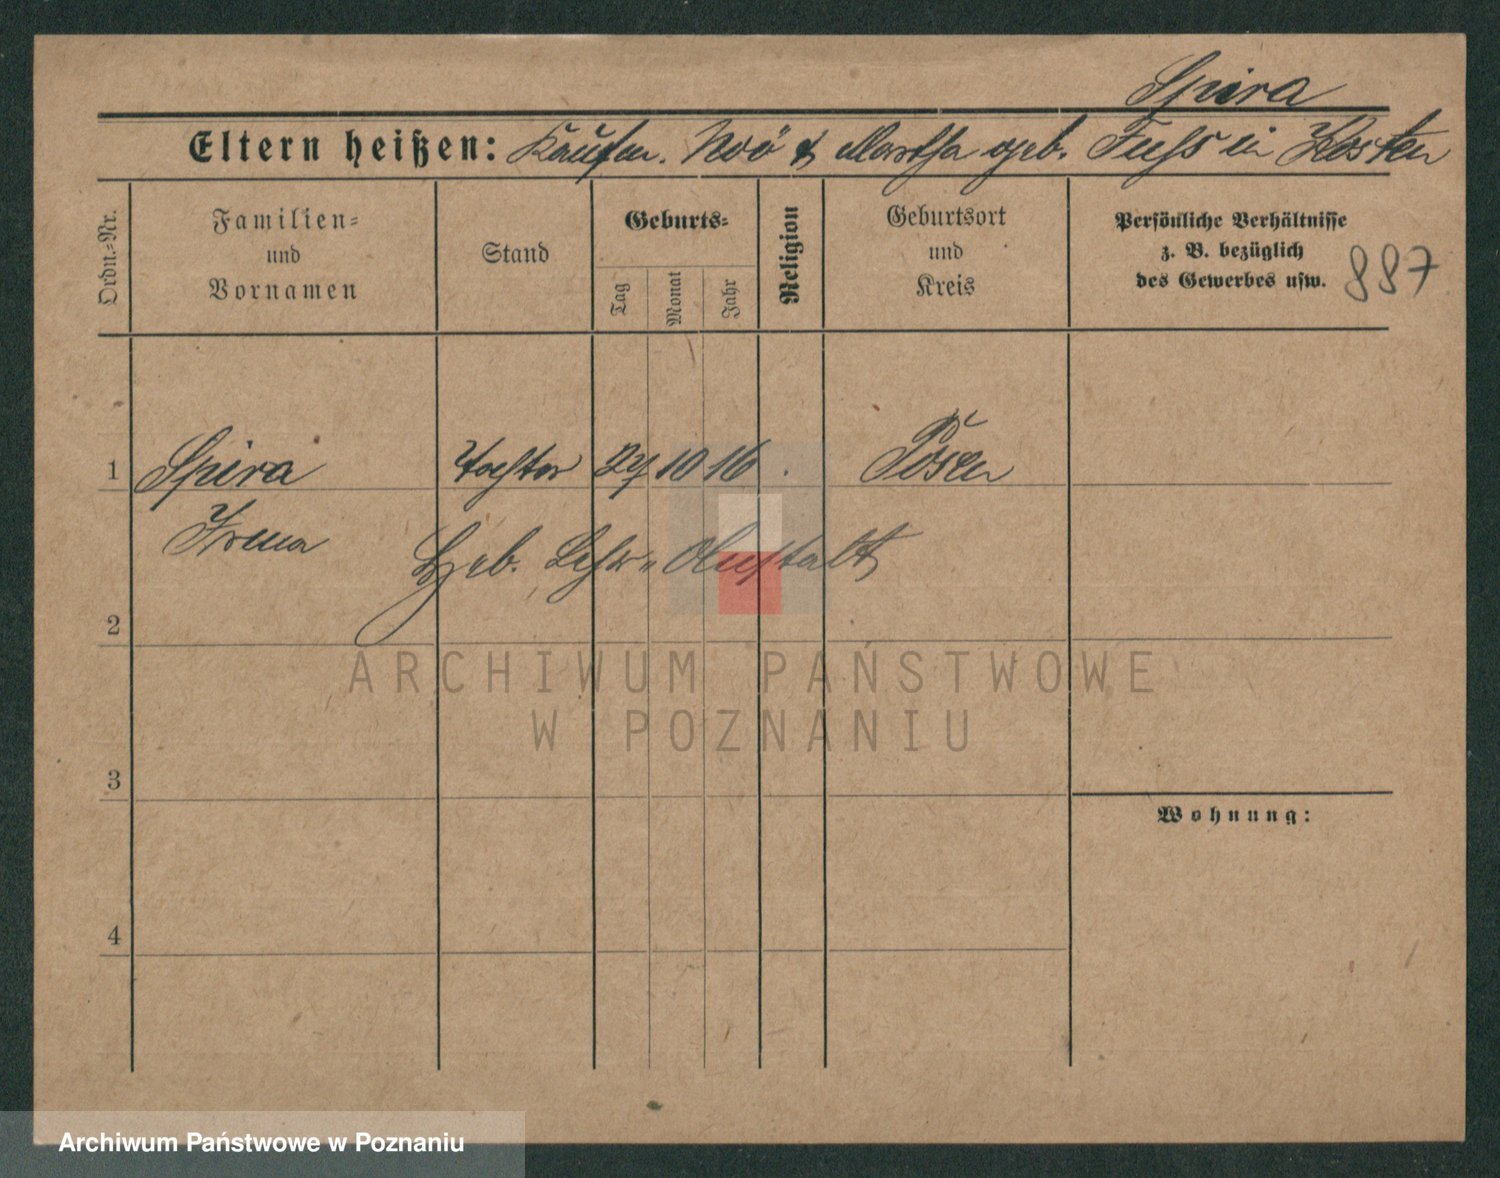 Spira
Eltern heißen: Kaufm. Noë & Martha geb. Fuchs in Kosten
Ordn.-Nr.
Familien-
und
Vornamen
Stand
Geburts-
Tag
Monat
Jahr
Religion
Geburtsort
und
Kreis
Persönliche Verhältnisse
z. B. bezüglich
des Gewerbes usw.
887
1 Spira Tochter 27 10 16 . Posen
Irena
Heb. Lehr- Anstalt
2
ARCHIWUM PAŃSTWOWE
W POZNANIU
3
Wohnung:
4
Archiwum Państwowe w Poznaniu